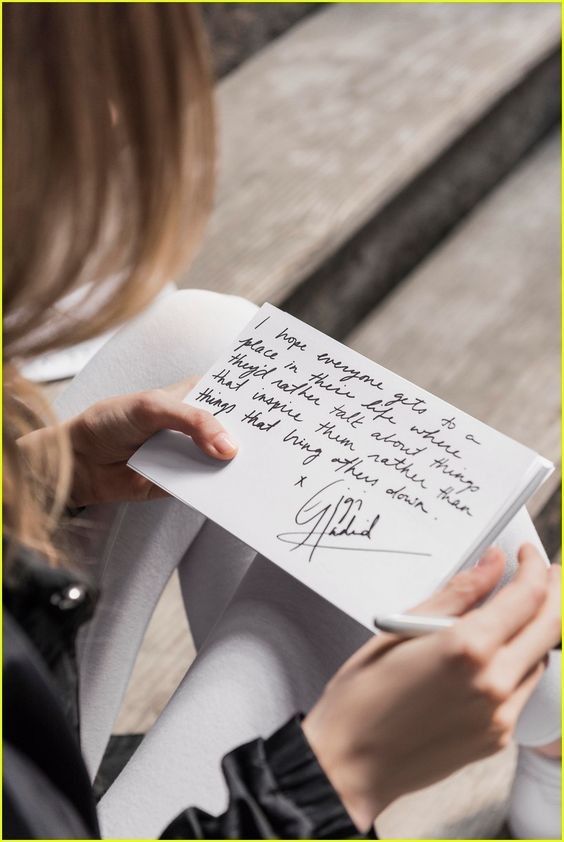 I hope everyone gets to a
place in their life where
they'd rather talk about things
that inspire them rather than
things that bring others down.
x
Gigi
Hadid